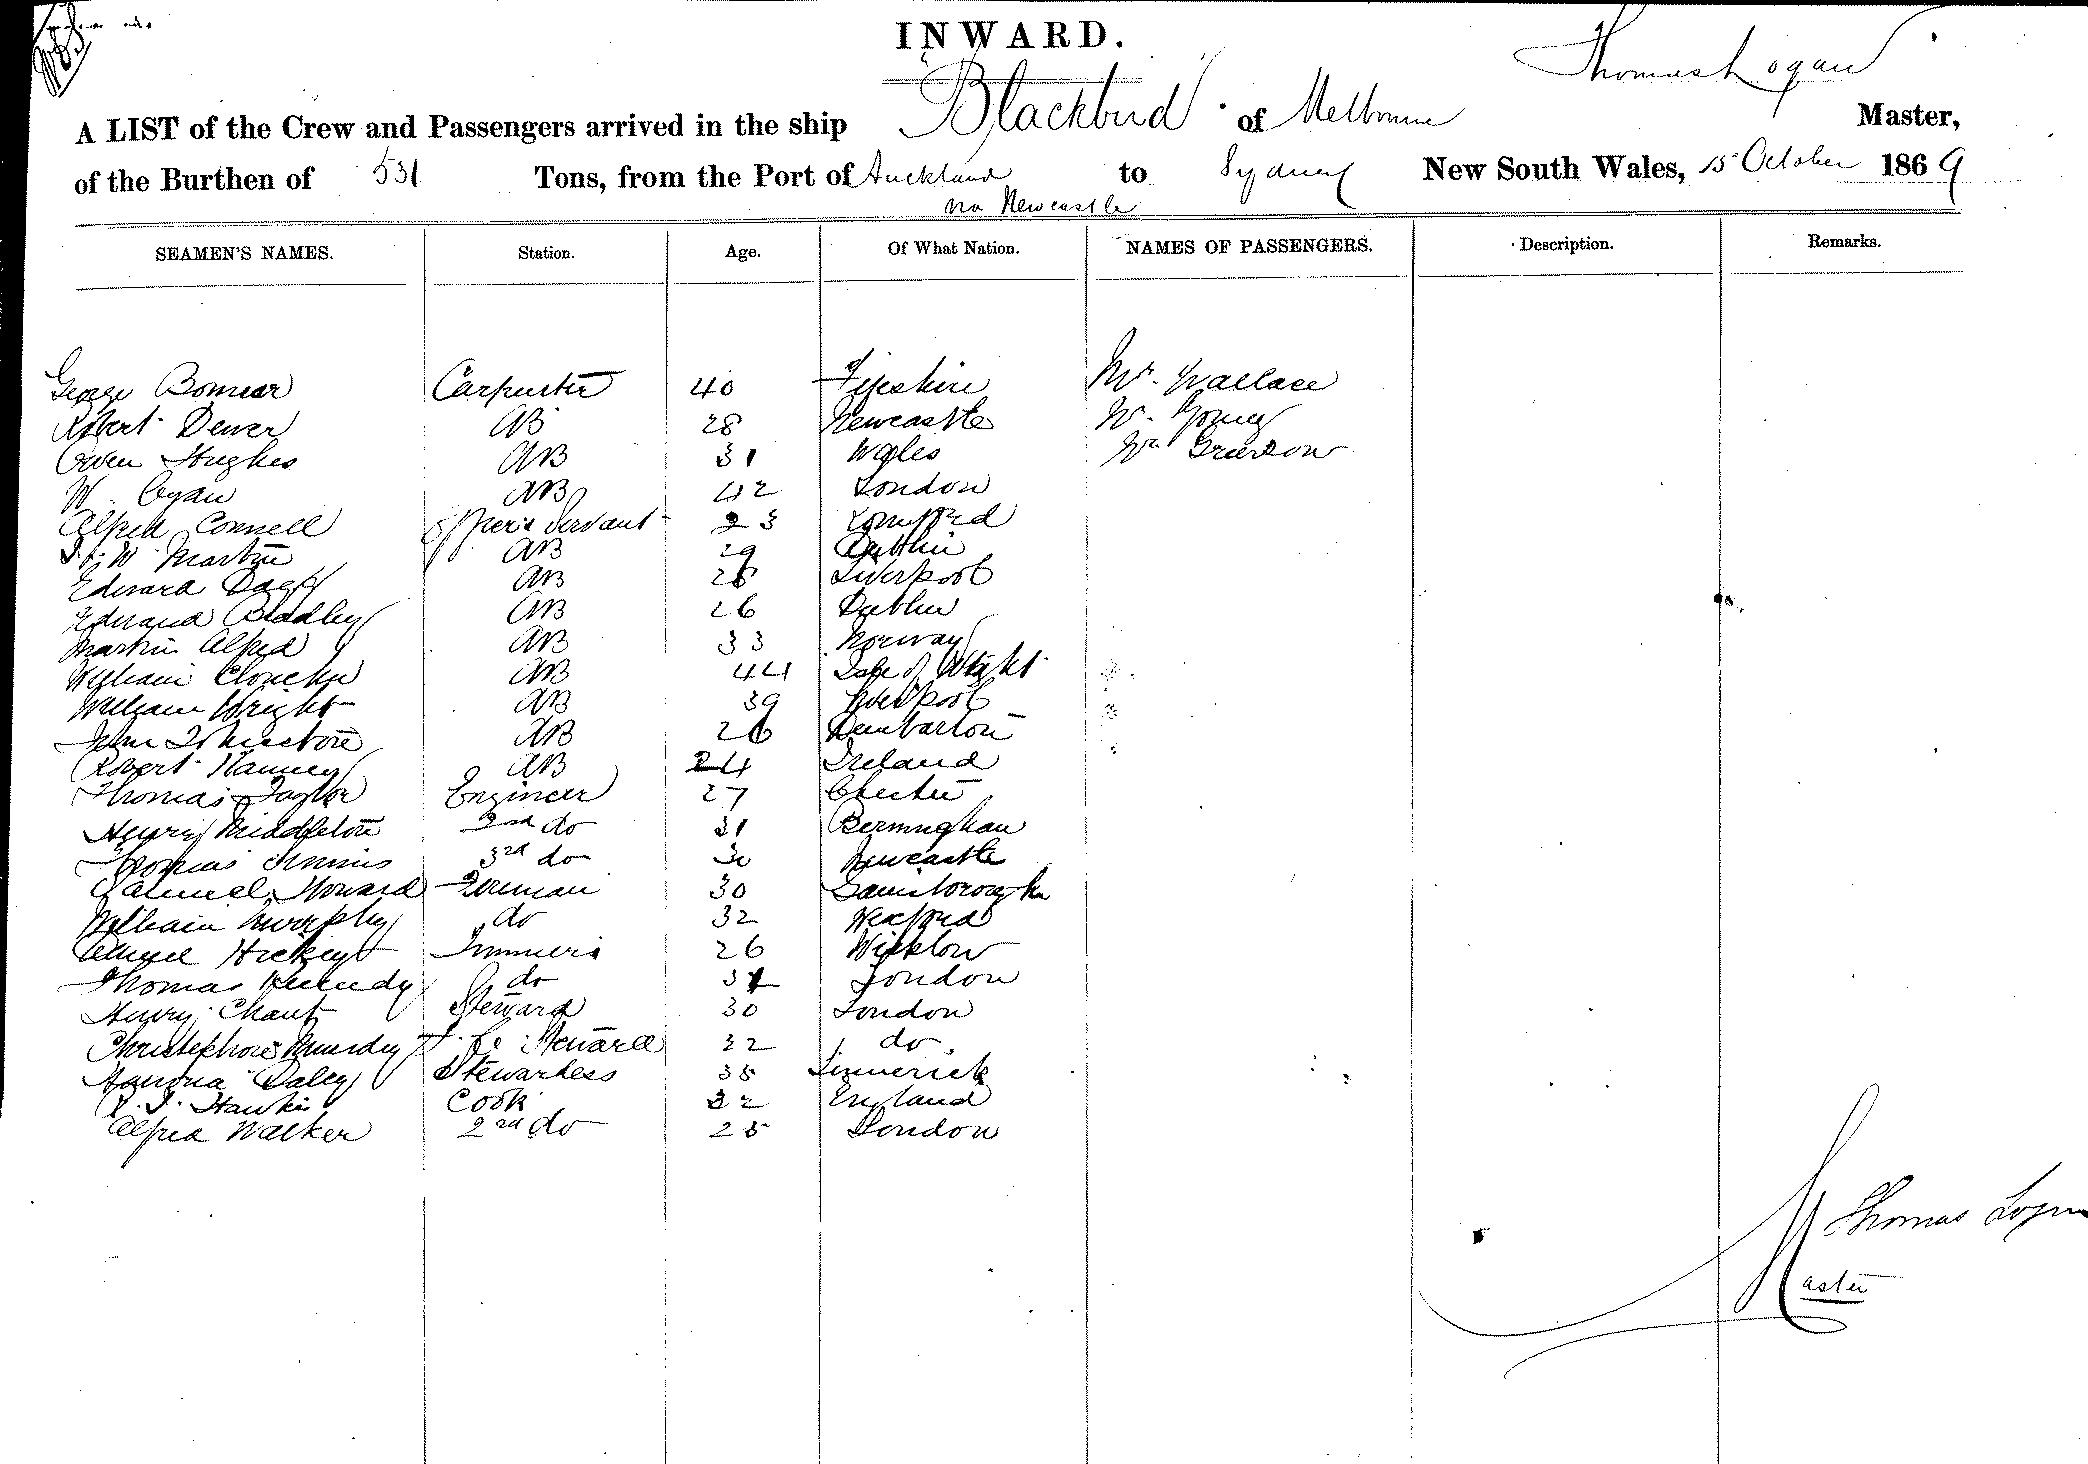 INWARD.
Thomas Logan
A LIST of the Crew and Passengers arrived in the ship Blackbird of Melbourne Master,
of the Burthen of 531 Tons, from the Port of Auckland to Sydney New South Wales, 15 October 1869
via Newcastle
SEAMEN'S NAMES. Station. Age. Of What Nation. NAMES OF PASSENGERS. Description. Remarks.
George Carpenter 40 Mr. Wallace
Robert Dewer AB 28 Newcastle
Owen Hughes AB 31 Wales
W. AB 42 London
Alfred Connell Servant 23
W Martin AB 29 Dublin
Edward AB Liverpool
Edward Bradley AB 26 Dublin
Martin Alfred AB 33 Norway
William AB 44 Isle of Wight
William Wright AB 39 Liverpool
John Johnstone AB 26 Dumbarton
Robert AB 24 Ireland
Thomas Taylor Engineer 27 Chester
Henry Middleton 2nd do 31 Bermingham
Thomas 3rd do Newcastle
Samuel Howard Fireman 30 Gainsborough
William Murphy do 32 Wexford
Hickey 26 Wicklow
Thomas do London
Henry Chant Steward 30 London
Christopher Steward 32 do
Daley Stewardess 35 Limerick
Cook 32 England
Alfred Walker 2nd do 25 London
Thomas Logan
Master